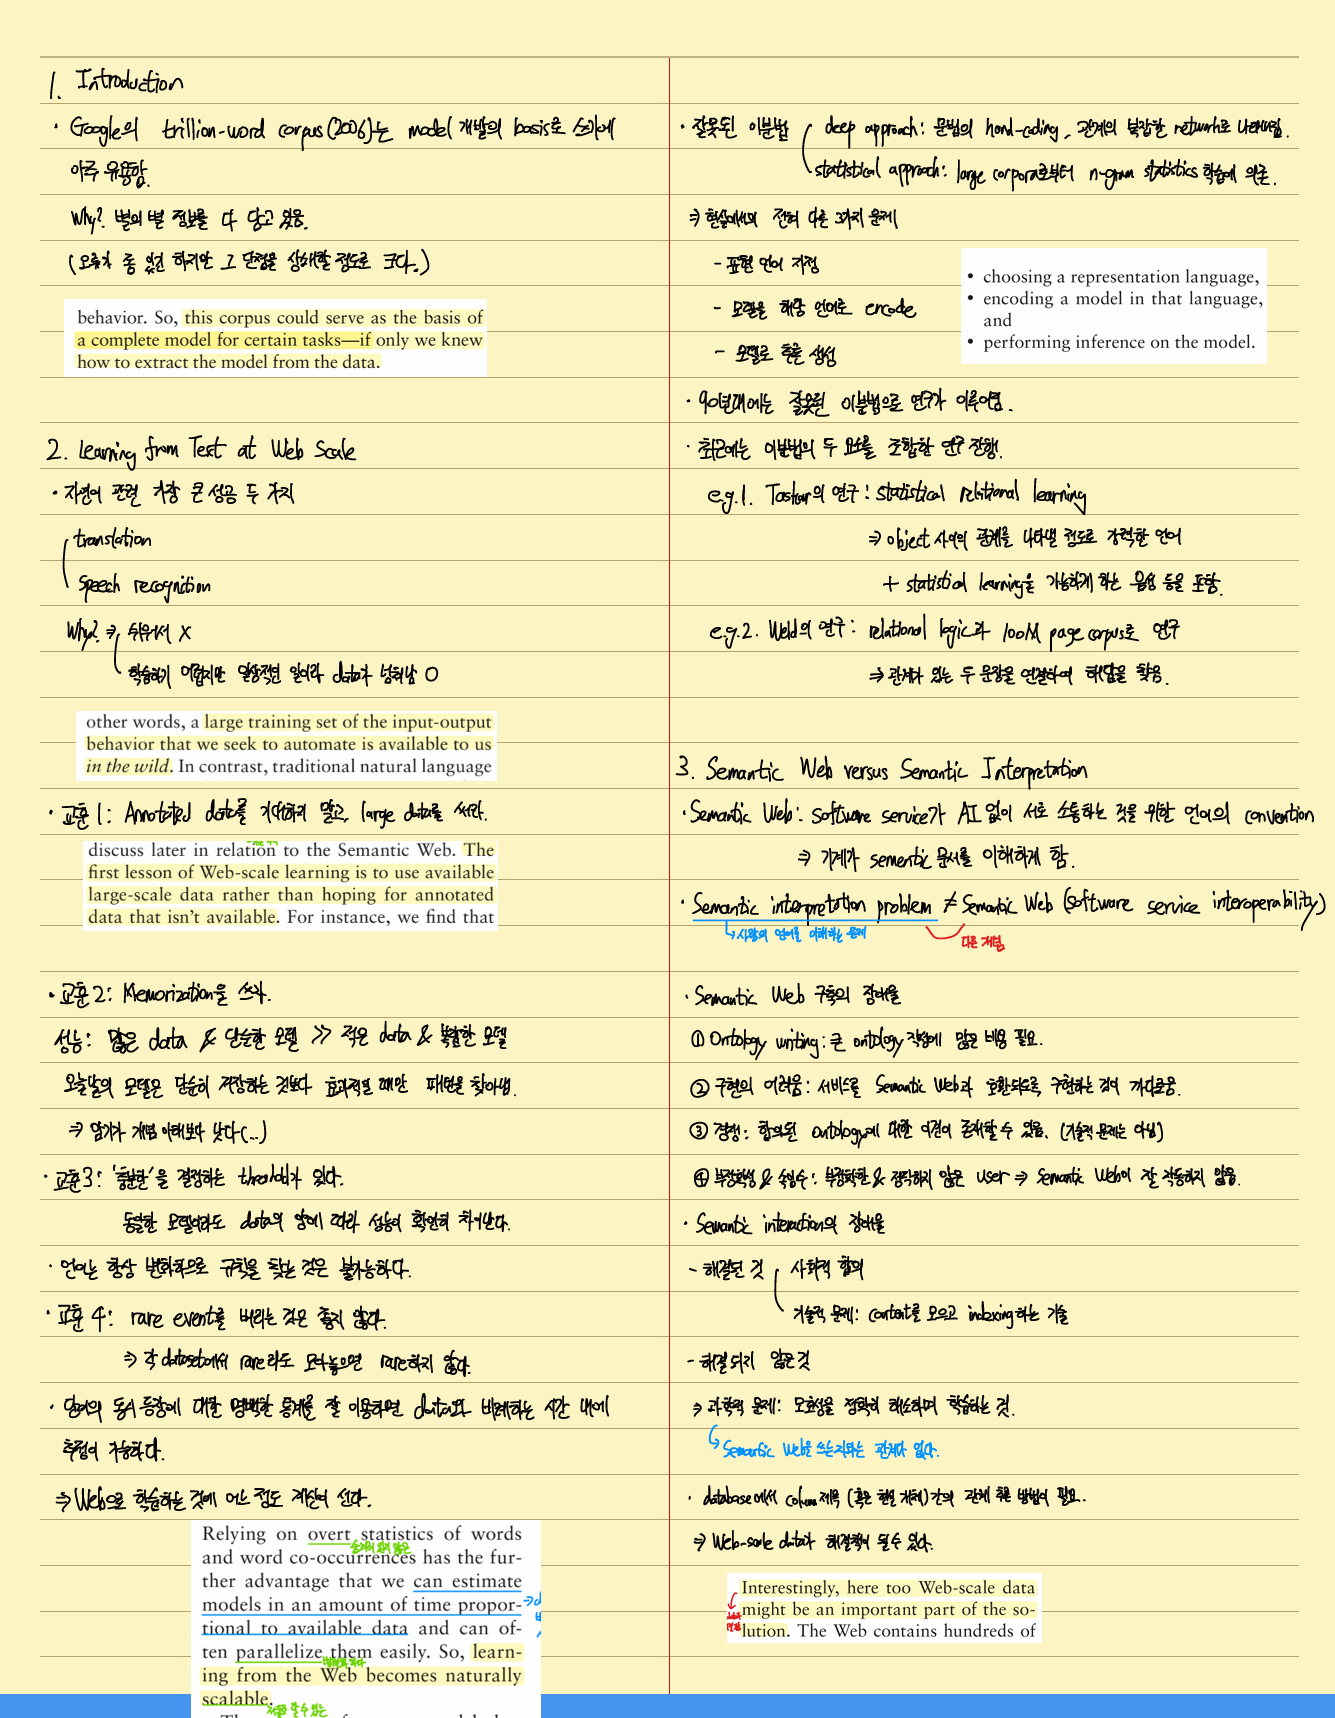 1. Introduction
· Google의 trillion-word corpus(2006)는 model 개발의 basis로 쓰기에
아주 유용함.
Why? 별의 별 정보를 다 담고 있음.
(오류가 좀 있긴 하지만 그 단점을 상쇄할 정도로 크다.)
behavior. So, this corpus could serve as the basis of
a complete model for certain tasks—if only we knew
how to extract the model from the data.
2. Learning from Text at Web Scale
· 자연어 관련 가장 큰 성공 두 가지
translation
speech recognition
Why? ⇒ 쉬워서 X
학습하기 어렵지만 일상적인 일이라 data가 넘쳐남 O
other words, a large training set of the input-output
behavior that we seek to automate is available to us
in the wild. In contrast, traditional natural language
· 교훈 1: Annotated data를 기대하지 말고, large data를 써라.
discuss later in relation to the Semantic Web. The
first lesson of Web-scale learning is to use available
large-scale data rather than hoping for annotated
data that isn't available. For instance, we find that
· 교훈 2: Memorization을 쓰자.
성능: 많은 data & 단순한 모델 >> 적은 data & 복잡한 모델
오늘날의 모델은 단순히 저장하는 것보다 효과적일 때만 패턴을 찾아냄.
⇒ 암기가 개념 이해보다 낫다(...)
· 교훈 3: '충분한'을 결정하는 threshold가 있다.
동일한 모델이라도 data의 양에 따라 성능이 확연히 차이난다.
· 언어는 항상 변화하므로 규칙을 찾는 것은 불가능하다.
· 교훈 4: rare event를 버리는 것은 좋지 않다.
⇒ 각 dataset에서 rare라도 모아놓으면 rare하지 않다.
· 단어의 동시 등장에 대한 명백한 통계를 잘 이용하면 data와 비례하는 시간 내에
추정이 가능하다.
⇒ Web으로 학습하는 것에 어느 정도 계산이 선다.
Relying on overt statistics of words
and word co-occurrences has the fur-
ther advantage that we can estimate
models in an amount of time propor-
tional to available data and can of-
ten parallelize them easily. So, learn-
ing from the Web becomes naturally
scalable.
· 잘못된 이분법
deep approach: 문법의 hand-coding, 관계의 복잡한 network로 나타내짐.
statistical approach: large corpora로부터 n-gram statistics 학습에 의존.
⇒ 현실에서의 전혀 다른 3가지 문제
- 표현 언어 지정
- 모델을 해당 언어로 encode
- 모델로 추론 생성
• choosing a representation language,
• encoding a model in that language,
and
• performing inference on the model.
· 90년대에는 잘못된 이분법으로 연구가 이루어짐.
· 최근에는 이분법의 두 요소를 조합한 연구 진행.
e.g.1. Taskar의 연구: statistical relational learning
⇒ object 사이의 관계를 나타낼 정도로 강력한 언어
+ statistical learning을 가능하게 하는 음성 등을 포함.
e.g.2. Weld의 연구: relational logic과 100M page corpus로 연구
⇒ 관계가 있는 두 문장을 연결하여 해답을 찾음.
3. Semantic Web versus Semantic Interpretation
· Semantic Web: software service가 AI 없이 서로 소통하는 것을 위한 언어의 convention
⇒ 기계가 sementic 문서를 이해하게 함.
· Semantic interpretation problem ≠ Semantic Web (software service interoperability)
↳ 사람의 언어를 이해하는 문제
다른 개념
· Semantic Web 구축의 장애물
① Ontology writing: 큰 ontology 작성에 많은 비용 필요.
② 구현의 어려움: 서비스를 Semantic Web과 호환되도록 구현하는 것이 까다로움.
③ 경쟁: 합의된 Ontology에 대한 이견이 존재할 수 있음. (기술적 문제는 아님)
④ 부정확성 & 속임수: 부정확한 & 정직하지 않은 user ⇒ Semantic Web이 잘 작동하지 않음.
· Semantic interaction의 장애물
- 해결된 것
사회적 합의
기술적 문제: content를 모으고 indexing하는 기술
- 해결되지 않은 것
⇒ 과학적 문제: 모호성을 정확히 해소하며 학습하는 것.
↳ Semantic Web을 쓰는지와는 관계가 없다.
· database에서 column 제목 (혹은 현실 개체)간의 관계 추론 방법이 필요.
⇒ Web-scale data가 해결책이 될 수 있다.
Interestingly, here too Web-scale data
might be an important part of the so-
lution. The Web contains hundreds of